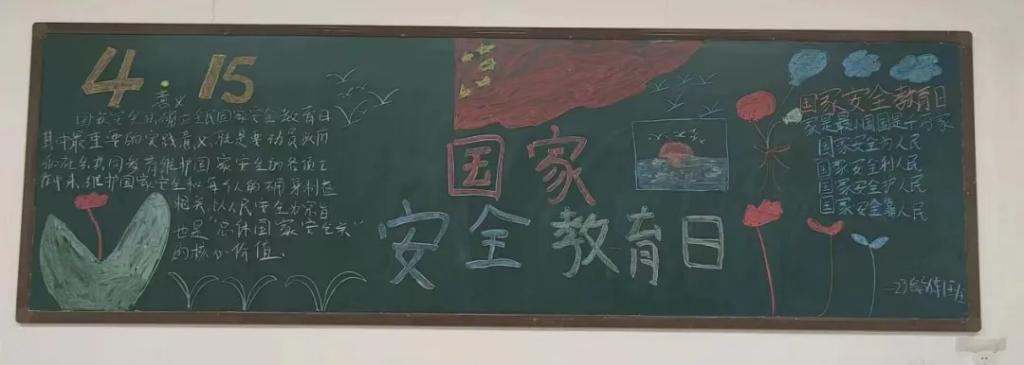 4·15
意义
国家安全教育日
其中最重要的实践意义,就是要动员政府
和社会共同参与维护国家安全的各项工
作来,维护国家安全和每个人的切身利益
相关以人民安全为宗旨
也是"总体国家安全观"
的核心价值。
国家
安全教育日
国家安全教育日
家是最小国国是千万家
国家安全为人民
国家安全利人民
国家安全护人民
国家安全靠人民